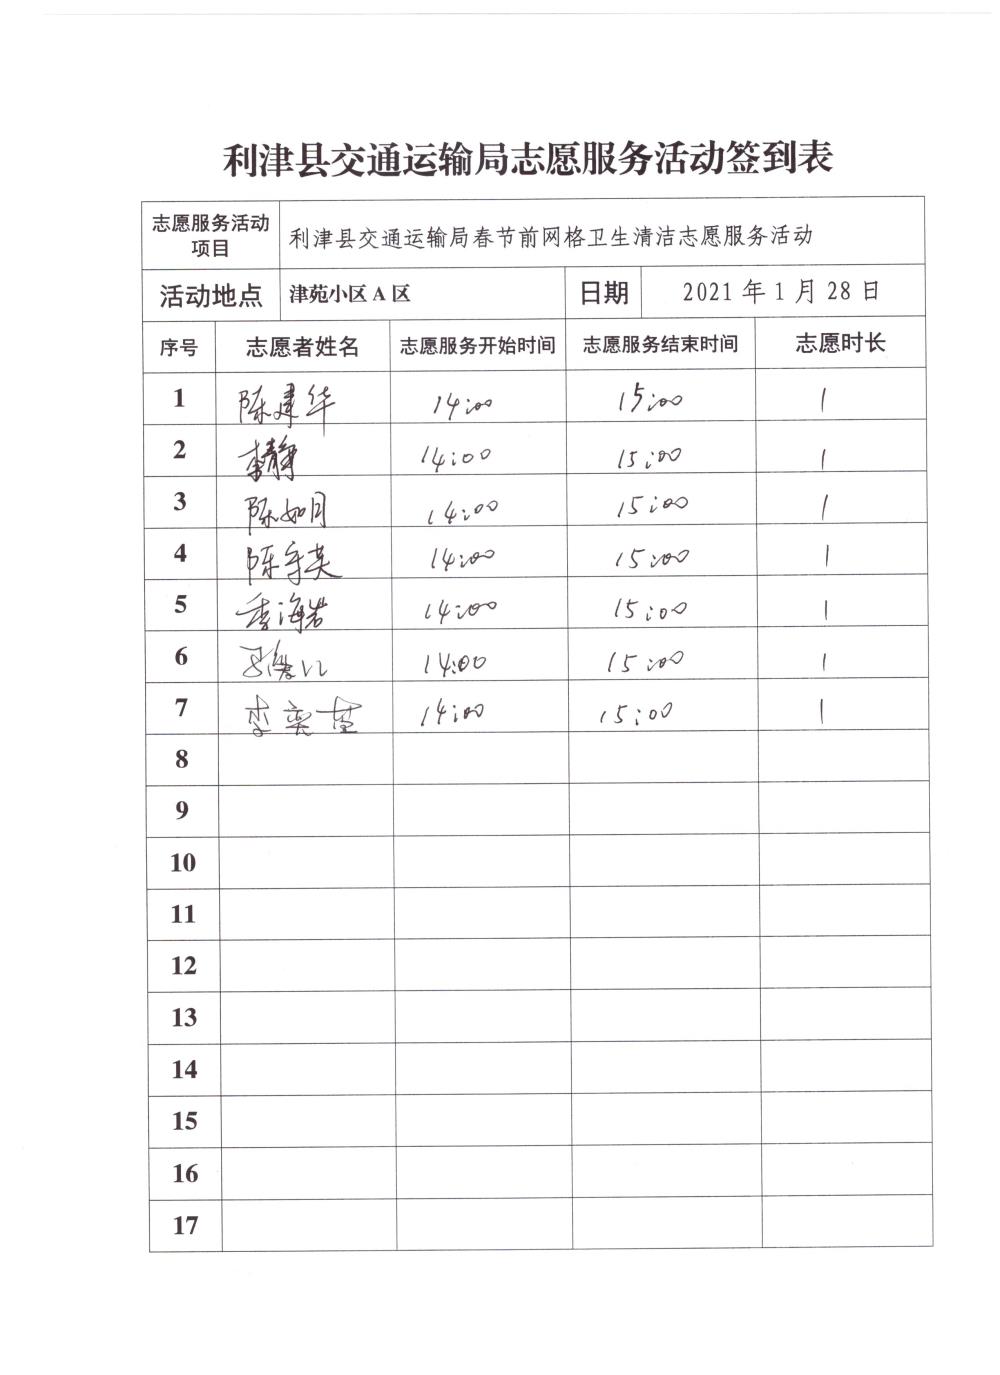 利津县交通运输局志愿服务活动签到表
志愿服务活动
项目
利津县交通运输局春节前网格卫生清洁志愿服务活动
活动地点 津苑小区 A 区 日期 2021 年 1 月 28 日
序号 志愿者姓名 志愿服务开始时间 志愿服务结束时间 志愿时长
1 陈建华 14:00 15:00 1
2 李静 14:00 15:00 1
3 陈如月 14:00 15:00 1
4 陈守英 14:00 15:00 1
5 李海岩 14:00 15:00 1
6 14:00 15:00 1
7 李奕 14:00 15:00 1
8
9
10
11
12
13
14
15
16
17